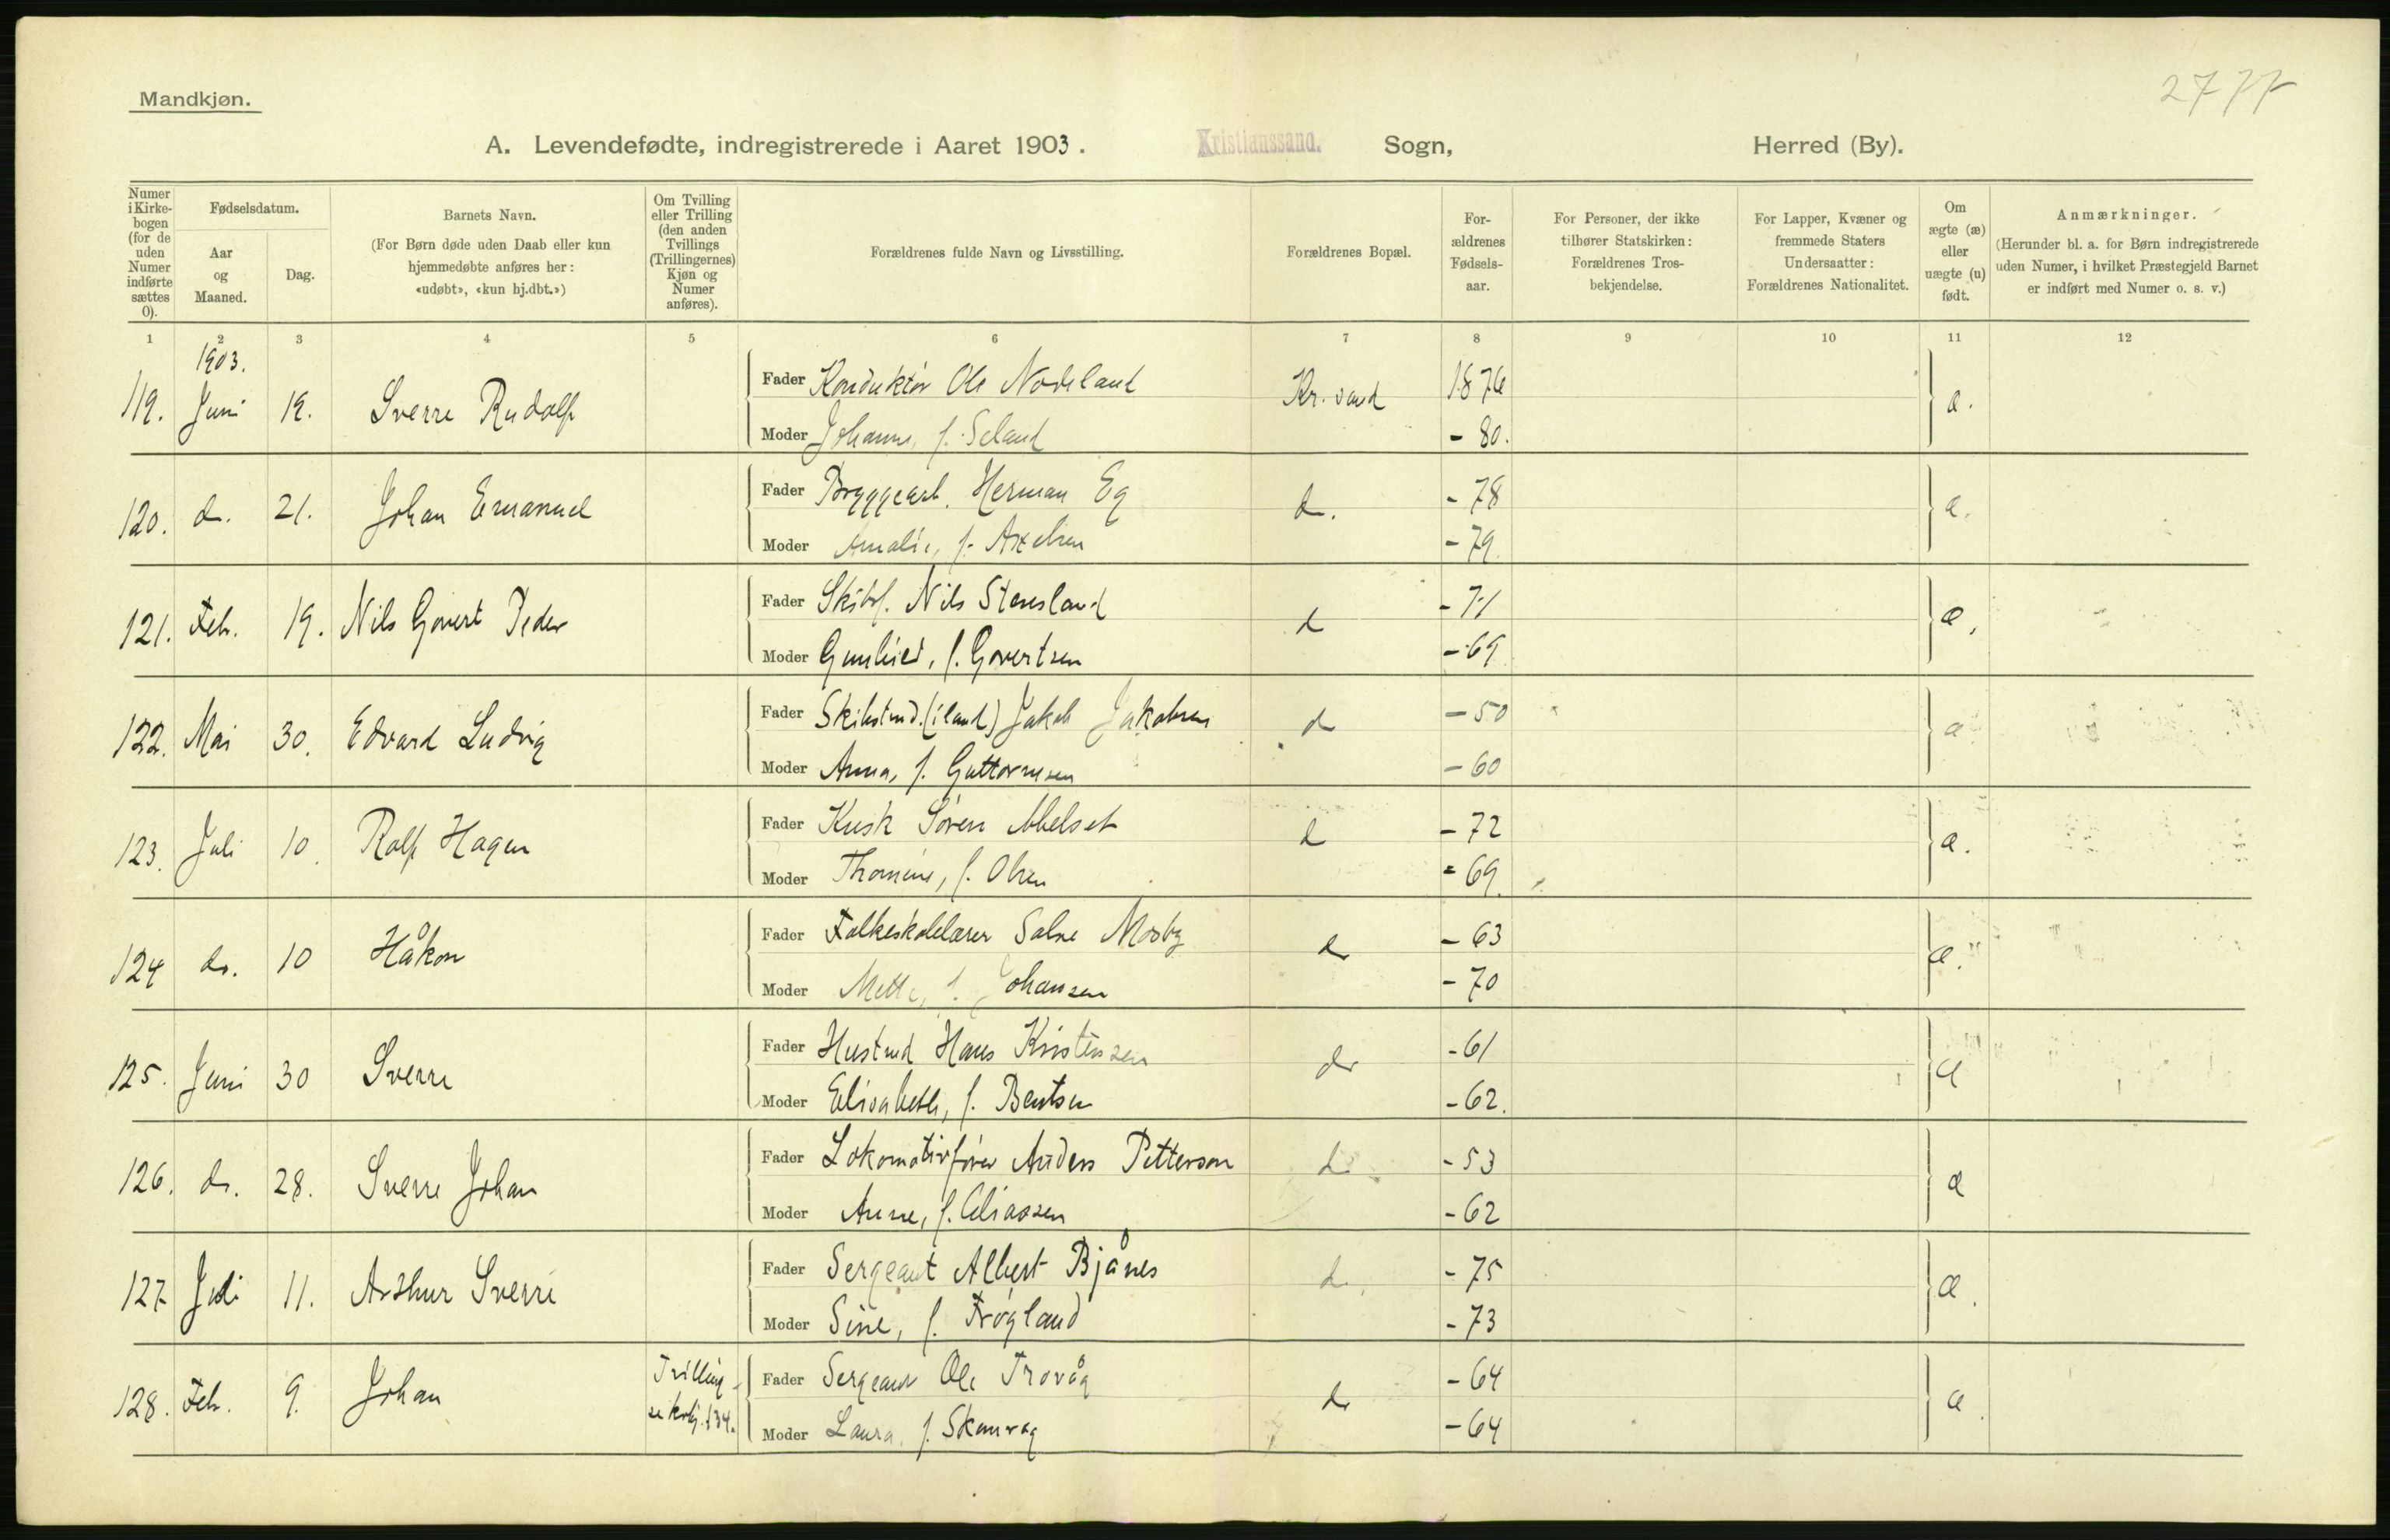 Mandkjøn.
A. Levendefødte, indregistrerede i Aaret 1903. Kristianssand. Sogn, Herred (By).
Numer i Kirkebogen (for de uden Numer indførte sættes 0).
Fødselsdatum.
Aar og Maaned.
Dag.
Barnets Navn.
(For Børn døde uden Daab eller kun hjemmedøbte anføres her: «udøbt», «kun hj.dbt.»)
Om Tvilling eller Trilling (den anden Tvillings (Trillingernes) Kjøn og Numer anføres).
Forældrenes fulde Navn og Livsstilling.
Forældrenes Bopæl.
Forældrenes Fødselsaar.
For Personer, der ikke tilhører Statskirken: Forældrenes Trosbekjendelse.
For Lapper, Kvæner og fremmede Staters Undersaatter: Forældrenes Nationalitet.
Om ægte (æ) eller uægte (u) født.
Anmærkninger.
(Herunder bl. a. for Børn indregistrerede uden Numer, i hvilket Præstegjeld Barnet er indført med Numer o. s. v.)
1 2 3 4 5 6 7 8 9 10 11 12
1903.
119. Juni 19. Sverre Rudolf Fader Konduktør Ole Nodeland Kr.sand 1876 æ.
Moder Johanne, f. Seland - 80.
120. do. 21. Johan Emanuel Fader Bryggearb. Herman Eg do. - 78 æ.
Moder Amalie, f. Axelsen - 79.
121. Feb. 19. Nils Govert Peder Fader Skibsf. Nils Stensland do - 71 æ.
Moder Gunhild, f. Govertsen - 69.
122. Mai 30. Edvard Ludvig Fader Skibstmd. (i land) Jakob Jakobsen do - 50 æ
Moder Anna, f. Guttormsen - 60
123. Juli 10. Rolf Hagen Fader Kusk Søren Abelset do - 72 æ.
Moder Thomine, f. Olsen - 69.
124 do. 10 Håkon Fader Folkeskolelærer Salve Mosby do - 63 æ.
Moder Mette, f. Johansen - 70
125. Juni 30 Sverre Fader Hustmd Hans Kristensen do - 61 æ
Moder Elisabeth, f. Bentsen - 62.
126. do. 28. Sverre Johan Fader Lokomotivfører Anders Petterson do - 53 æ
Moder Anne, f. Eliassen - 62
127. Juli 11. Arthur Sverre Fader Sergeant Albert Bjånes do. - 75 æ.
Moder Sine, f. Frøgland - 73
128. Feb. 9. Johan Tvilling se kvkj. 134. Fader Sergeant Ole Trovåg do - 64 æ.
Moder Laura, f. Skauvåg - 64